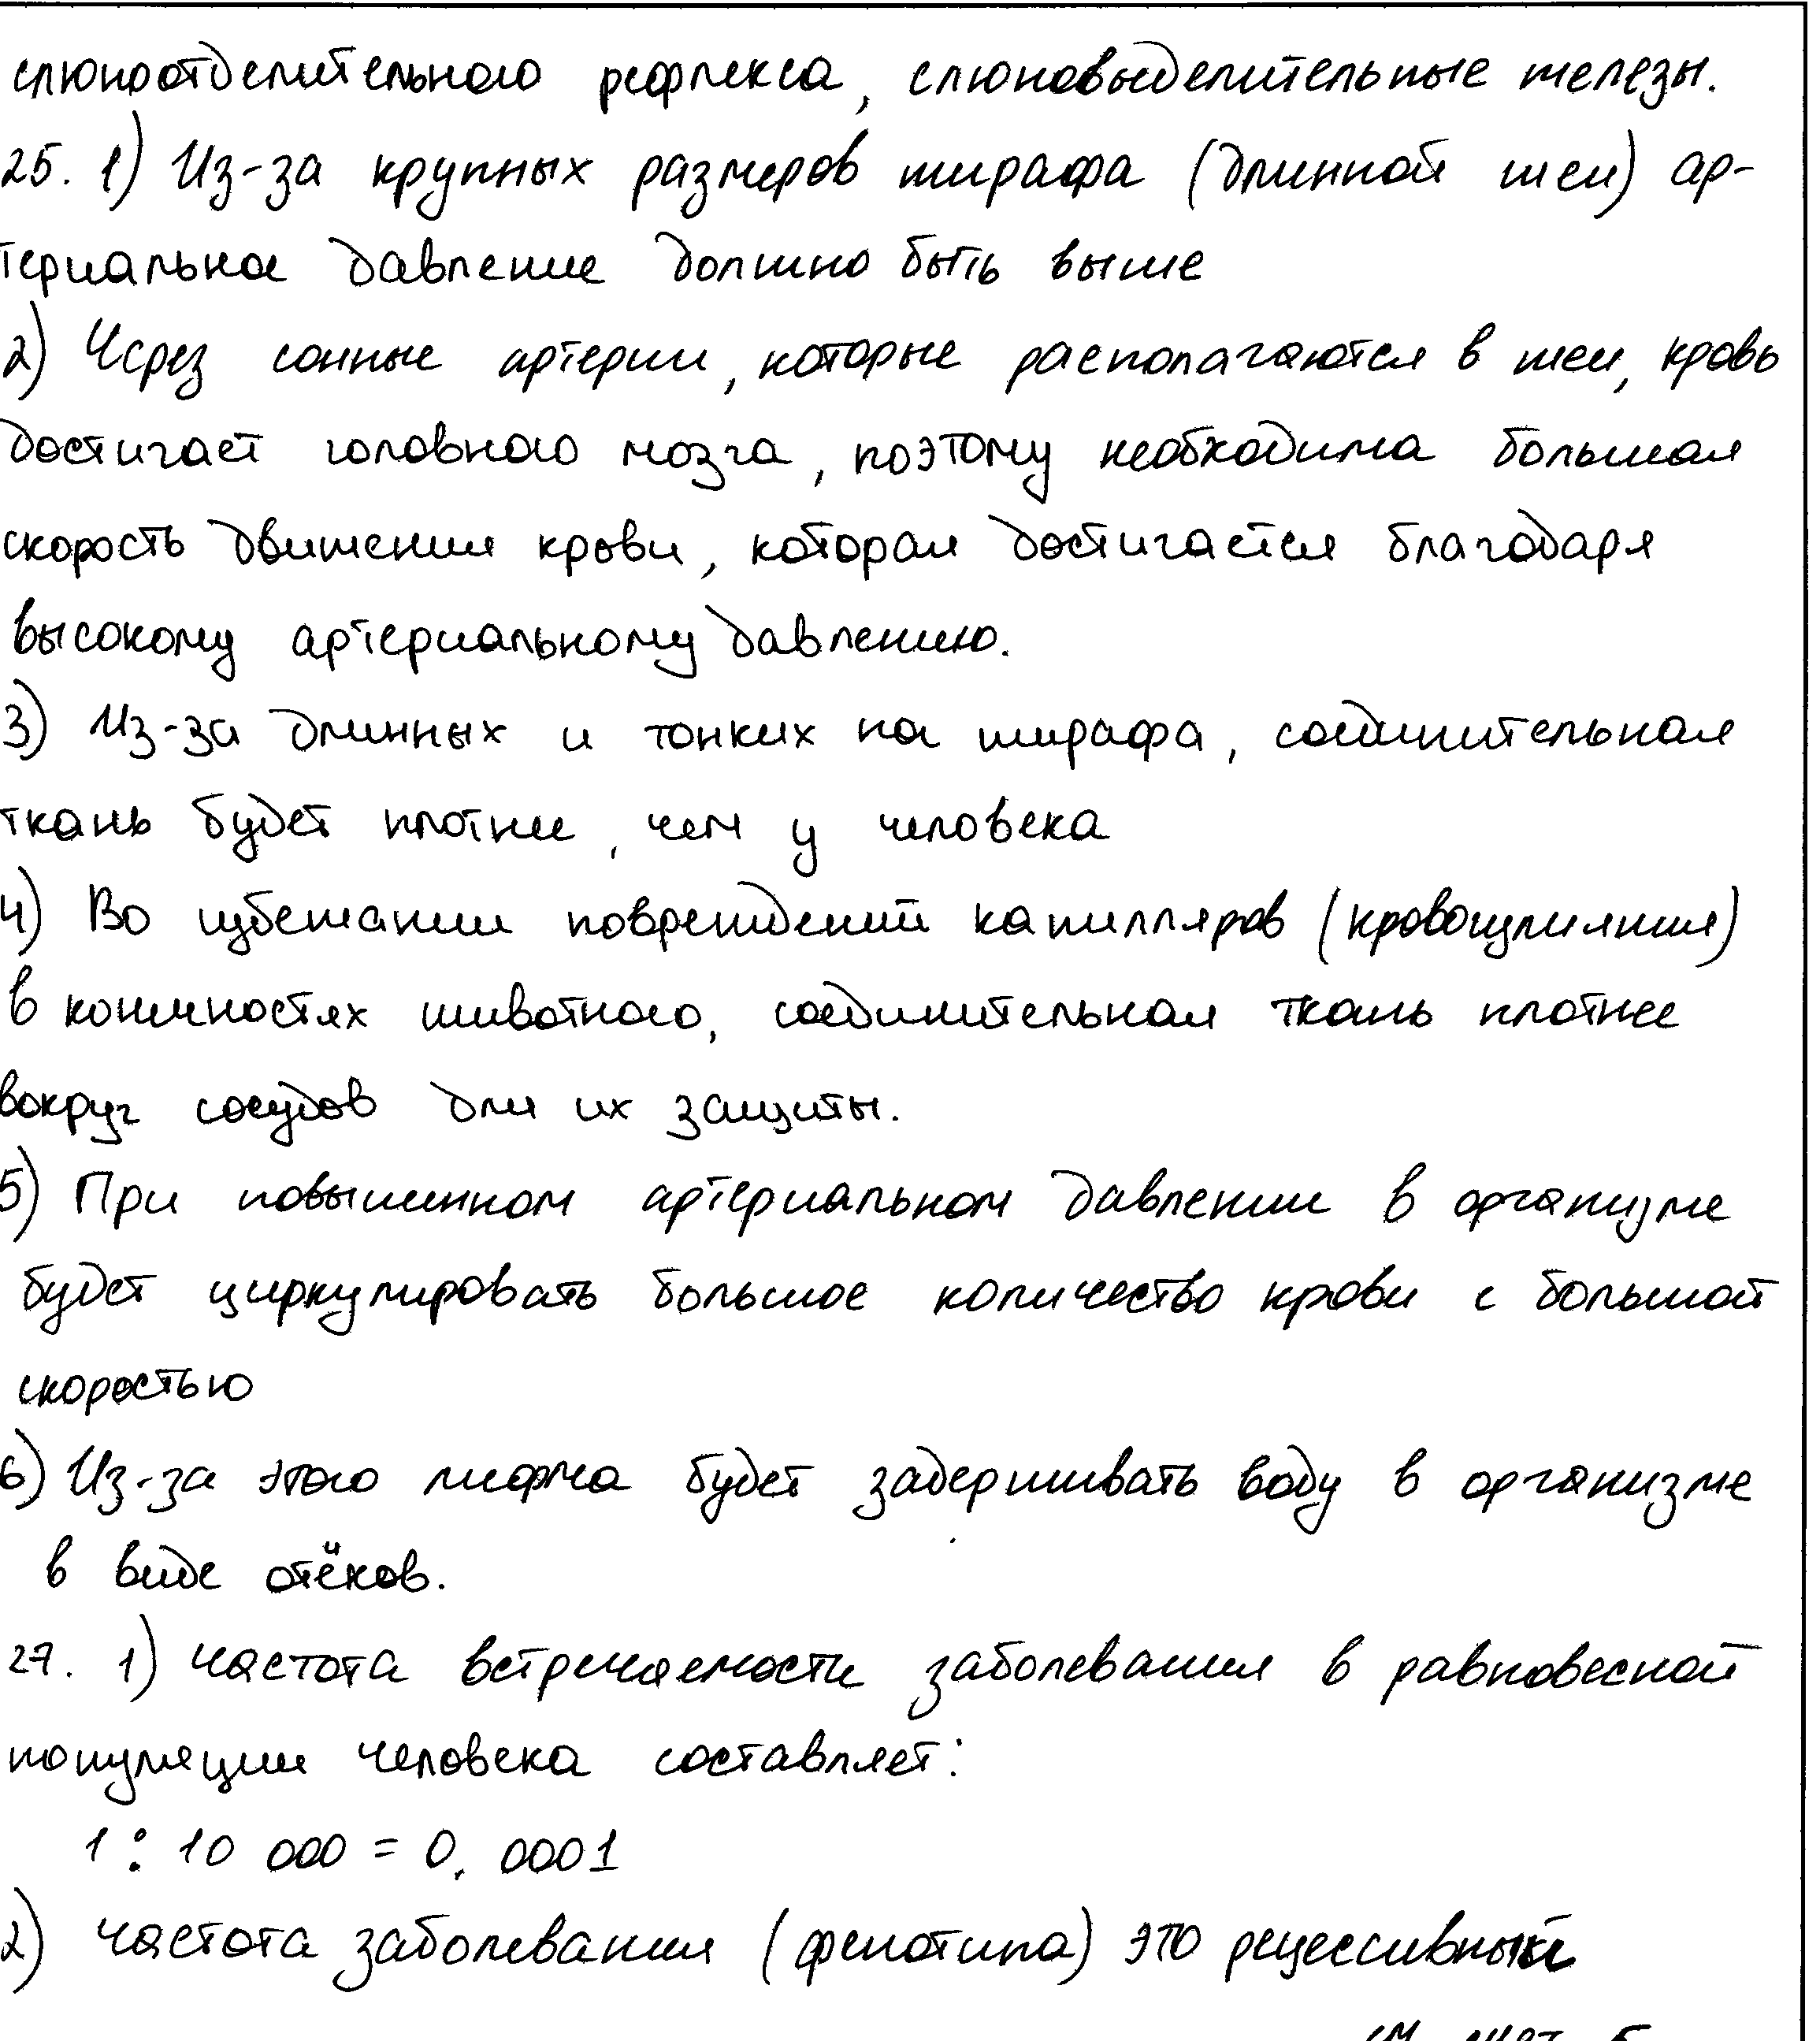 слюноотделительного рефлекса, слюновыделительные железы.
25. 1) Из-за крупных размеров жирафа (длинной шеи) ар-
териальное давление должно быть выше
2) Через сонные артерии, которые располагаются в шеи, кровь
достигает головного мозга, поэтому необходима большая
скорость движения крови, которая достигается благодаря
высокому артериальному давлению.
3) Из-за длинных и тонких ног жирафа, соединительная
ткань будет плотнее, чем у человека
4) Во избежании повреждений капилляров (кровоизлияния)
в конечностях животного, соединительная ткань плотнее
вокруг сосудов для их защиты.
5) При повышенном артериальном давлении в организме
будет циркулировать большое количество крови с большой
скоростью
6) Из-за этого лифма будет задерживать воду в организме
в виде отёков.
27. 1) частота встречаемости заболевания в равновесной
популяции человека составляет:
1 : 10 000 = 0,0001
2) частота заболевания (фенотипа) это рецессивный